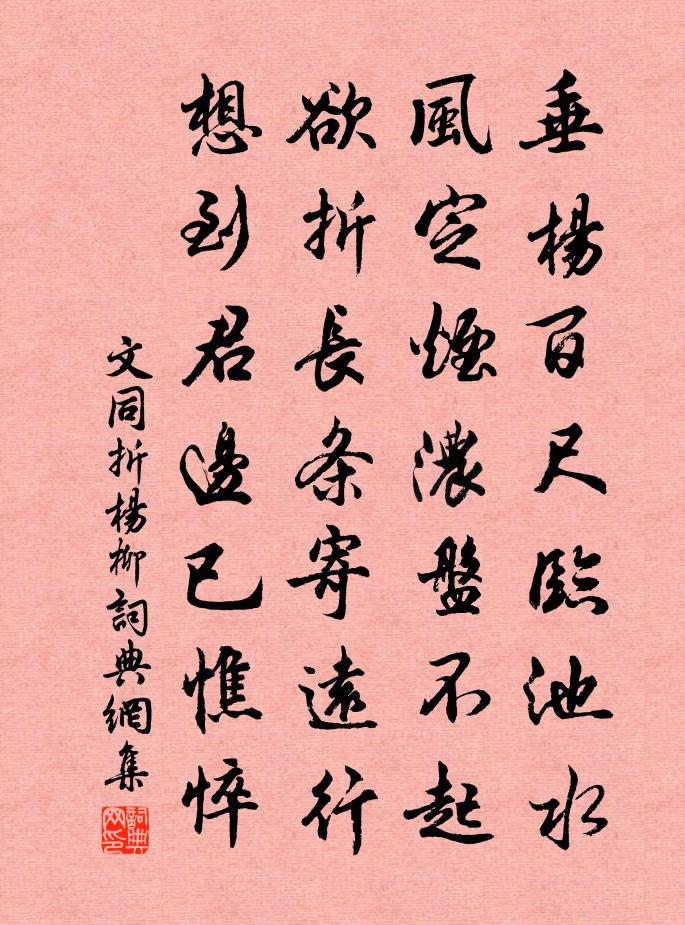 垂楊百尺臨池水
風定煙濃盤不起
欲折長条寄遠行
想到君邊已憔悴
文同折楊柳詞典網集
詞典网印